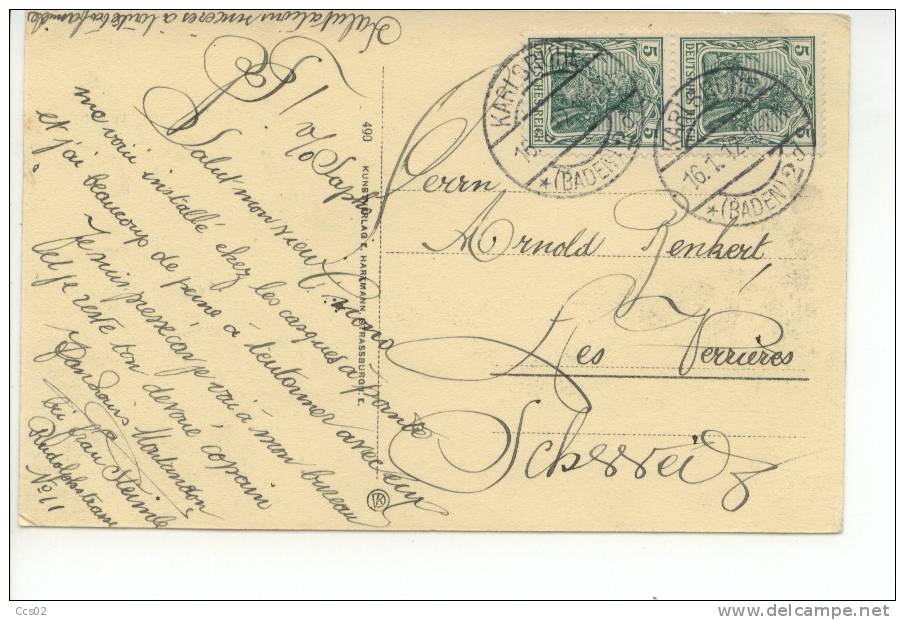 Salutations sincères à toute ta famille
Salut mon vieux
me voici installé chez les casques à pointe
et j'ai beaucoup de peine à teutonner avec eux
Je suis pressé car je vais à mon bureau
et je reste ton dévoué copain
Montandon
bei Frau Steimle
Rudolfstrasse
No 11
490 KUNSTVERLAG E. HARTMANN, STRASSBURG I. E.
DEUTSCHES REICH
5 5
DEUTSCHES REICH
5 5
KARLSRUHE
(BADEN)
KARLSRUHE
16.1.12
(BADEN)
Herrn
Arnold Renkert
Les Verrières
Schweiz
Ccs02
www.delcampe.net